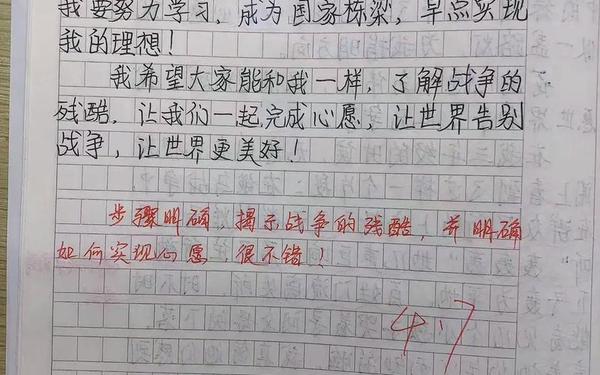 我要努力学习，成为国家栋梁，早点实现
我的理想！
我希望大家能和我一样，了解战争的
残酷，让我们一起完成心愿，让世界告别
战争，让世界更美好！
步骤明确，揭示战争的残酷，并明确
如何实现心愿，很不错！
4.7